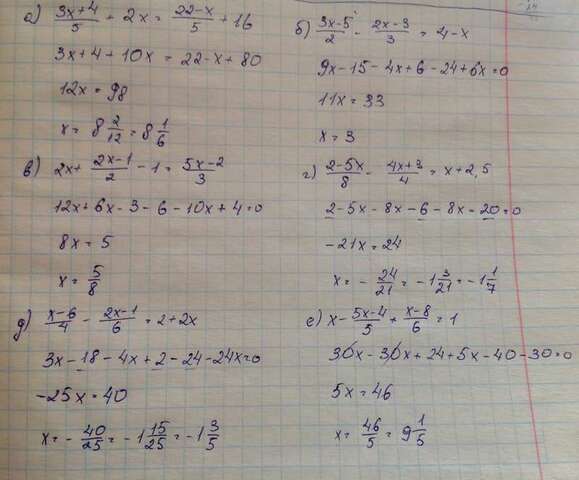 а) (3x+4)/5 + 2x = (22-x)/5 + 16
3x+4+10x = 22-x+80
12x = 98
x = 8 2/12 = 8 1/6
б) (3x-5)/2 - (2x-3)/3 = 4-x
9x-15-4x+6-24+6x=0
11x = 33
x = 3
в) 2x + (2x-1)/2 - 1 = (5x-2)/3
12x+6x-3-6-10x+4=0
8x = 5
x = 5/8
г) (2-5x)/8 - (4x+3)/4 = x+2,5
2-5x-8x-6-8x-20=0
-21x = 24
x = -24/21 = -1 3/21 = -1 1/7
д) (x-6)/4 - (2x-1)/6 = 2+2x
3x-18-4x+2-24-24x=0
-25x = 40
x = -40/25 = -1 15/25 = -1 3/5
е) x - (5x-4)/5 + (x-8)/6 = 1
30x-30x+24+5x-40-30=0
5x = 46
x = 46/5 = 9 1/5